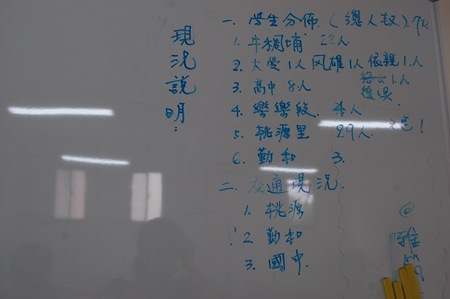 現況說明:
一. 學生分佈. (總人數) 94
1. 牛稠埔 22人
2. 大愛1人 风雄1人 依親1人
1人
3. 高中 8人
4. 樂樂段. 4人
5. 桃源里 29人
6. 勤和 3.
二. 交通現況.
1. 桃源
2. 勤和
3. 國中.